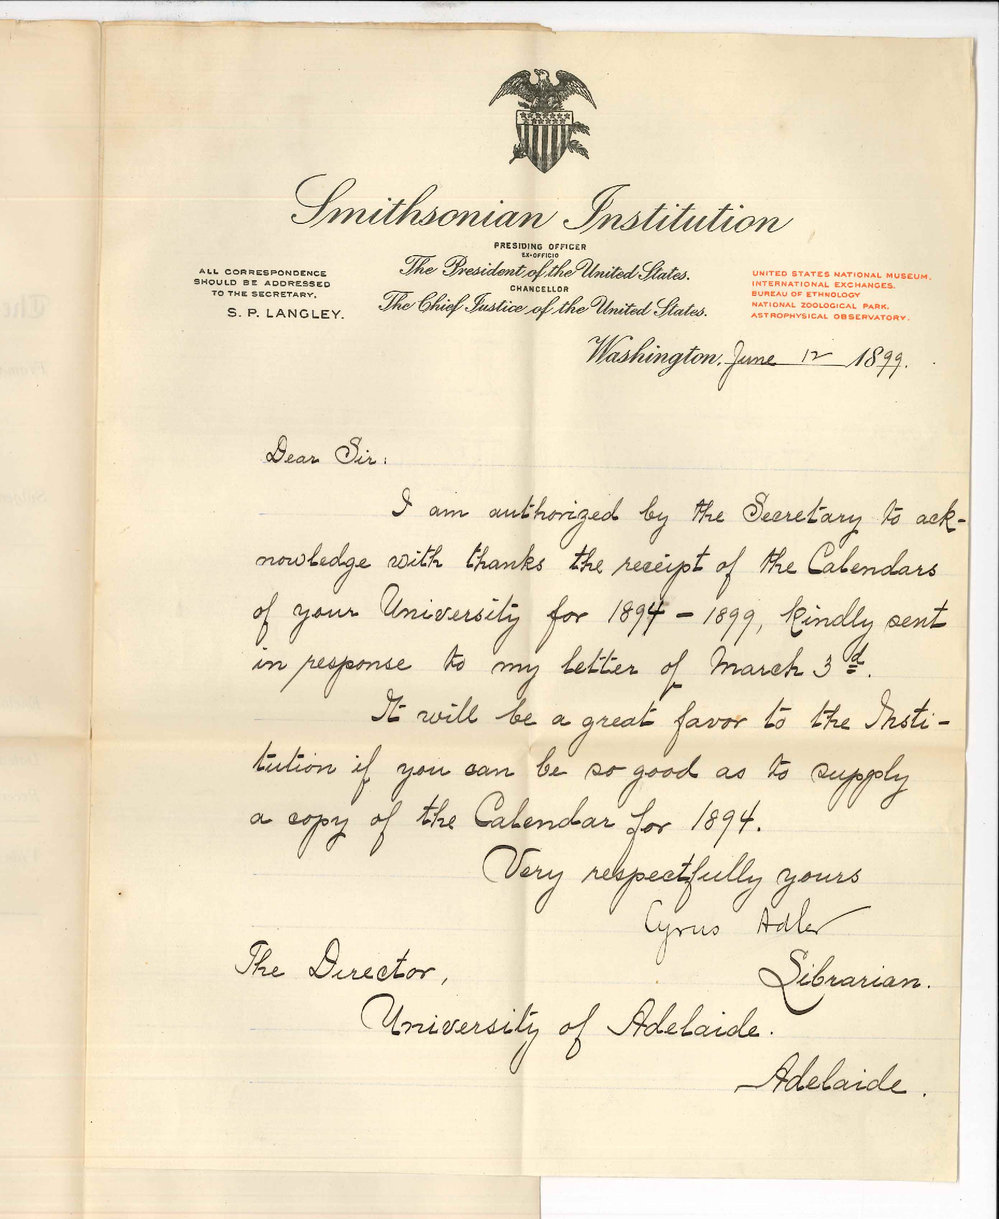 Smithsonian Institution
PRESIDING OFFICER
EX-OFFICIO
The President of the United States.
CHANCELLOR
The Chief Justice of the United States.
ALL CORRESPONDENCE
SHOULD BE ADDRESSED
TO THE SECRETARY,
S. P. LANGLEY.
UNITED STATES NATIONAL MUSEUM.
INTERNATIONAL EXCHANGES.
BUREAU OF ETHNOLOGY
NATIONAL ZOOLOGICAL PARK.
ASTROPHYSICAL OBSERVATORY.
Washington, June 12 1899.
Dear Sir:
I am authorized by the Secretary to ack-
nowledge with thanks the receipt of the Calendars
of your University for 1894 - 1899, kindly sent
in response to my letter of March 3d.
It will be a great favor to the Insti-
tution if you can be so good as to supply
a copy of the Calendar for 1894.
Very respectfully yours
Cyrus Adler
Librarian.
The Director,
University of Adelaide.
Adelaide.